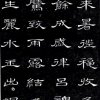 來暑往秋收
餘成歲律呂
騰致雨露結
生麗水玉出